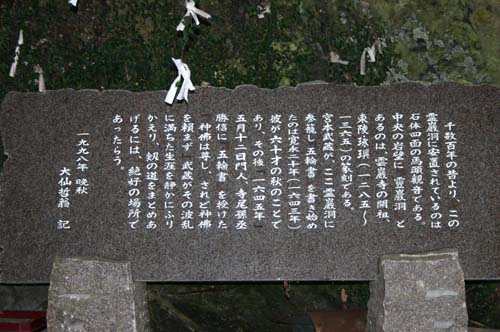 千数百年の昔より、この
霊巌洞に安置されているのは
石体四面の馬頭観音である。
中央の岩壁に「霊巌洞」と
あるのは、霊巌寺の開祖、
東陵永璵(一二八五〜
一三六五)の篆刻である。
宮本武蔵が、ここ霊巌洞に
参籠し「五輪書」を書き始め
たのは寛永二十年(一六四三)
彼が六十才の秋のことで
あり、その後、一六四五年
五月十二日門人、寺尾孫丞
勝信に「五輪書」を授けた。
神佛は尊し、されど神佛
を頼まず、武蔵がその波乱
に満ちた生涯を静かにふり
かえり、剱の道をまとめあ
げるには、絶好の場所で
あったろう。
一九九八年 晩秋
大仙哲翁 記